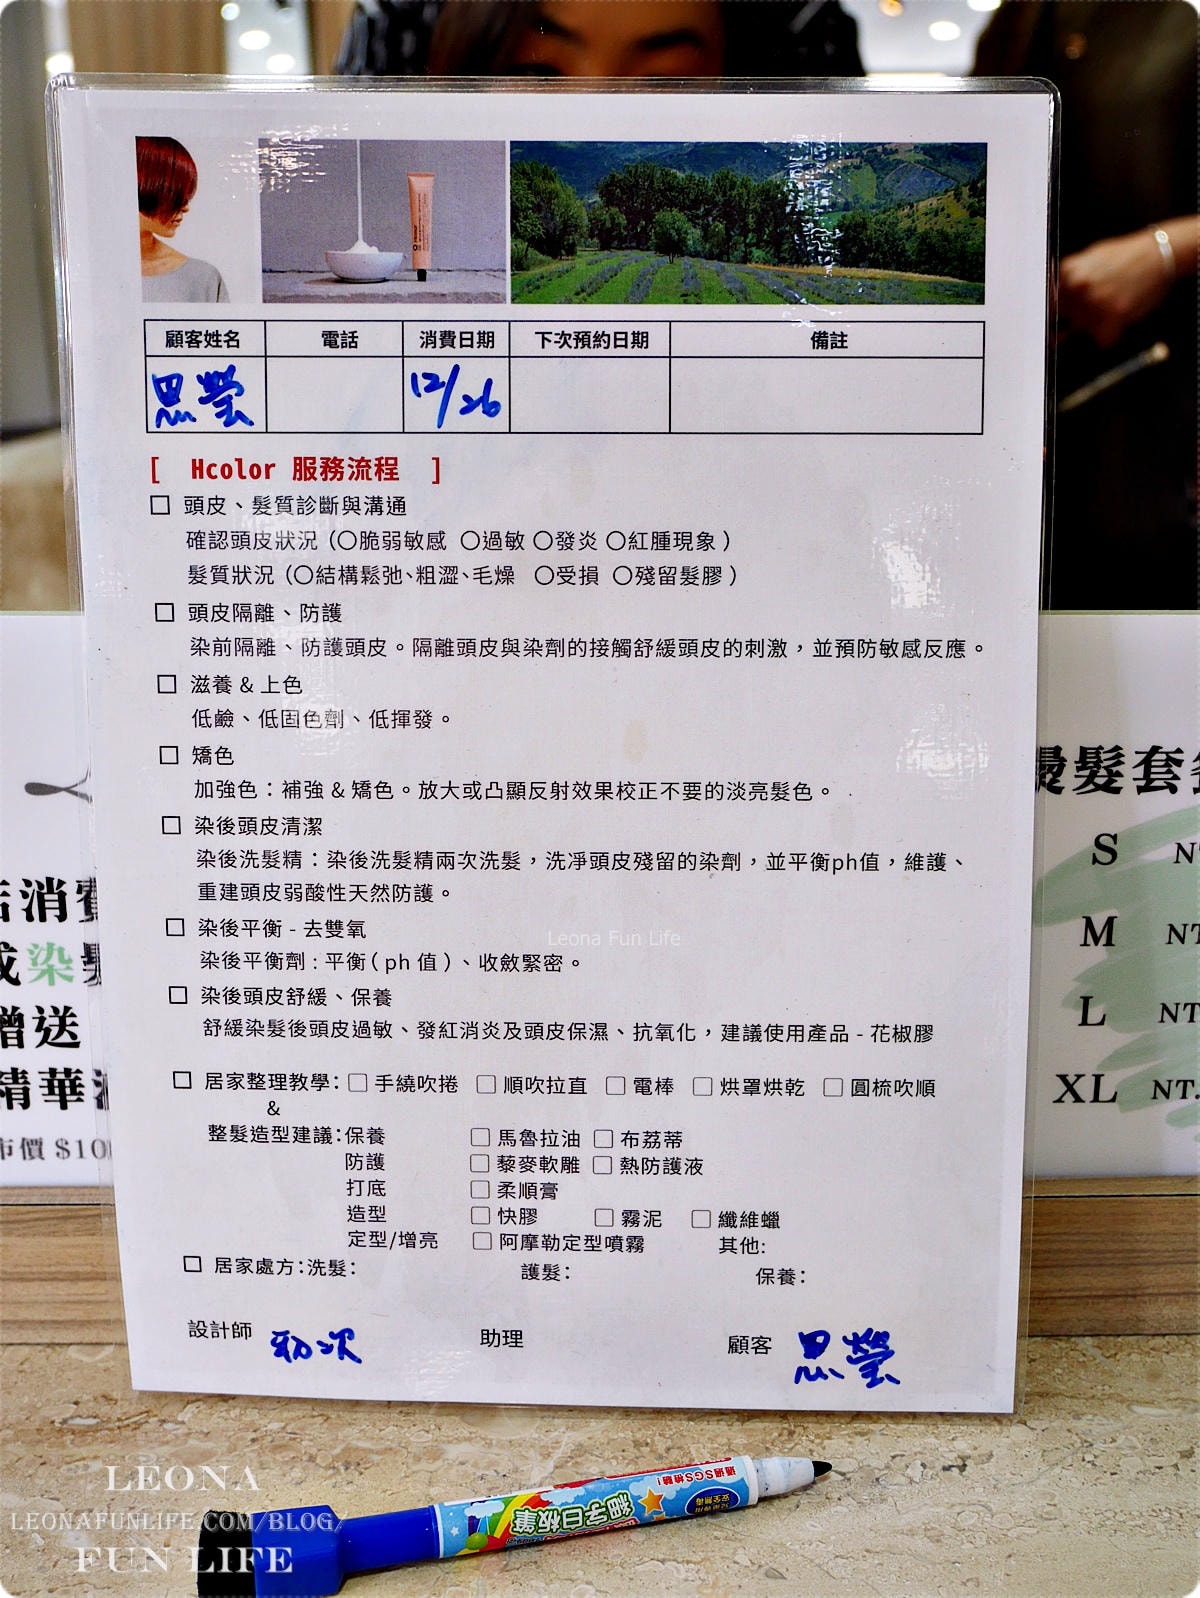 顧客姓名 電話 消費日期 下次預約日期 備註
思瑩 12/26
[ Hcolor 服務流程 ]
□ 頭皮、髮質診斷與溝通
確認頭皮狀況 (○脆弱敏感 ○過敏 ○發炎 ○紅腫現象 )
髮質狀況 (○結構鬆弛、粗澀、毛燥 ○受損 ○殘留髮膠 )
□ 頭皮隔離、防護
染前隔離、防護頭皮。隔離頭皮與染劑的接觸舒緩頭皮的刺激，並預防敏感反應。
□ 滋養 & 上色
低鹼、低固色劑、低揮發。
□ 矯色
加強色：補強 & 矯色。放大或凸顯反射效果校正不要的淡亮髮色。
□ 染後頭皮清潔
染後洗髮精：染後洗髮精兩次洗髮，洗淨頭皮殘留的染劑，並平衡ph值，維護、
重建頭皮弱酸性天然防護。
□ 染後平衡 - 去雙氧
染後平衡劑 : 平衡 ( ph 值 )、收斂緊密。
□ 染後頭皮舒緩、保養
舒緩染髮後頭皮過敏、發紅消炎及頭皮保濕、抗氧化，建議使用產品 - 花椒膠
□ 居家整理教學: □ 手繞吹捲 □ 順吹拉直 □ 電棒 □ 烘罩烘乾 □ 圓梳吹順
&
整髮造型建議:保養 □ 馬魯拉油 □ 布荔蒂
防護 □ 藜麥軟雕 □ 熱防護液
打底 □ 柔順膏
造型 □ 快膠 □ 霧泥 □ 纖維蠟
定型/增亮 □ 阿摩勒定型噴霧 其他:
□ 居家處方:洗髮: 護髮: 保養:
設計師 助理 顧客 思瑩
Leona Fun Life
髮套
S
M NT
L NT
XL NT.
消費
染
贈送
精華
市價 $10
通過SGS檢驗!
細字白板筆
LEONA
LEONAFUNLIFE.COM/BLOG/
FUN LIFE